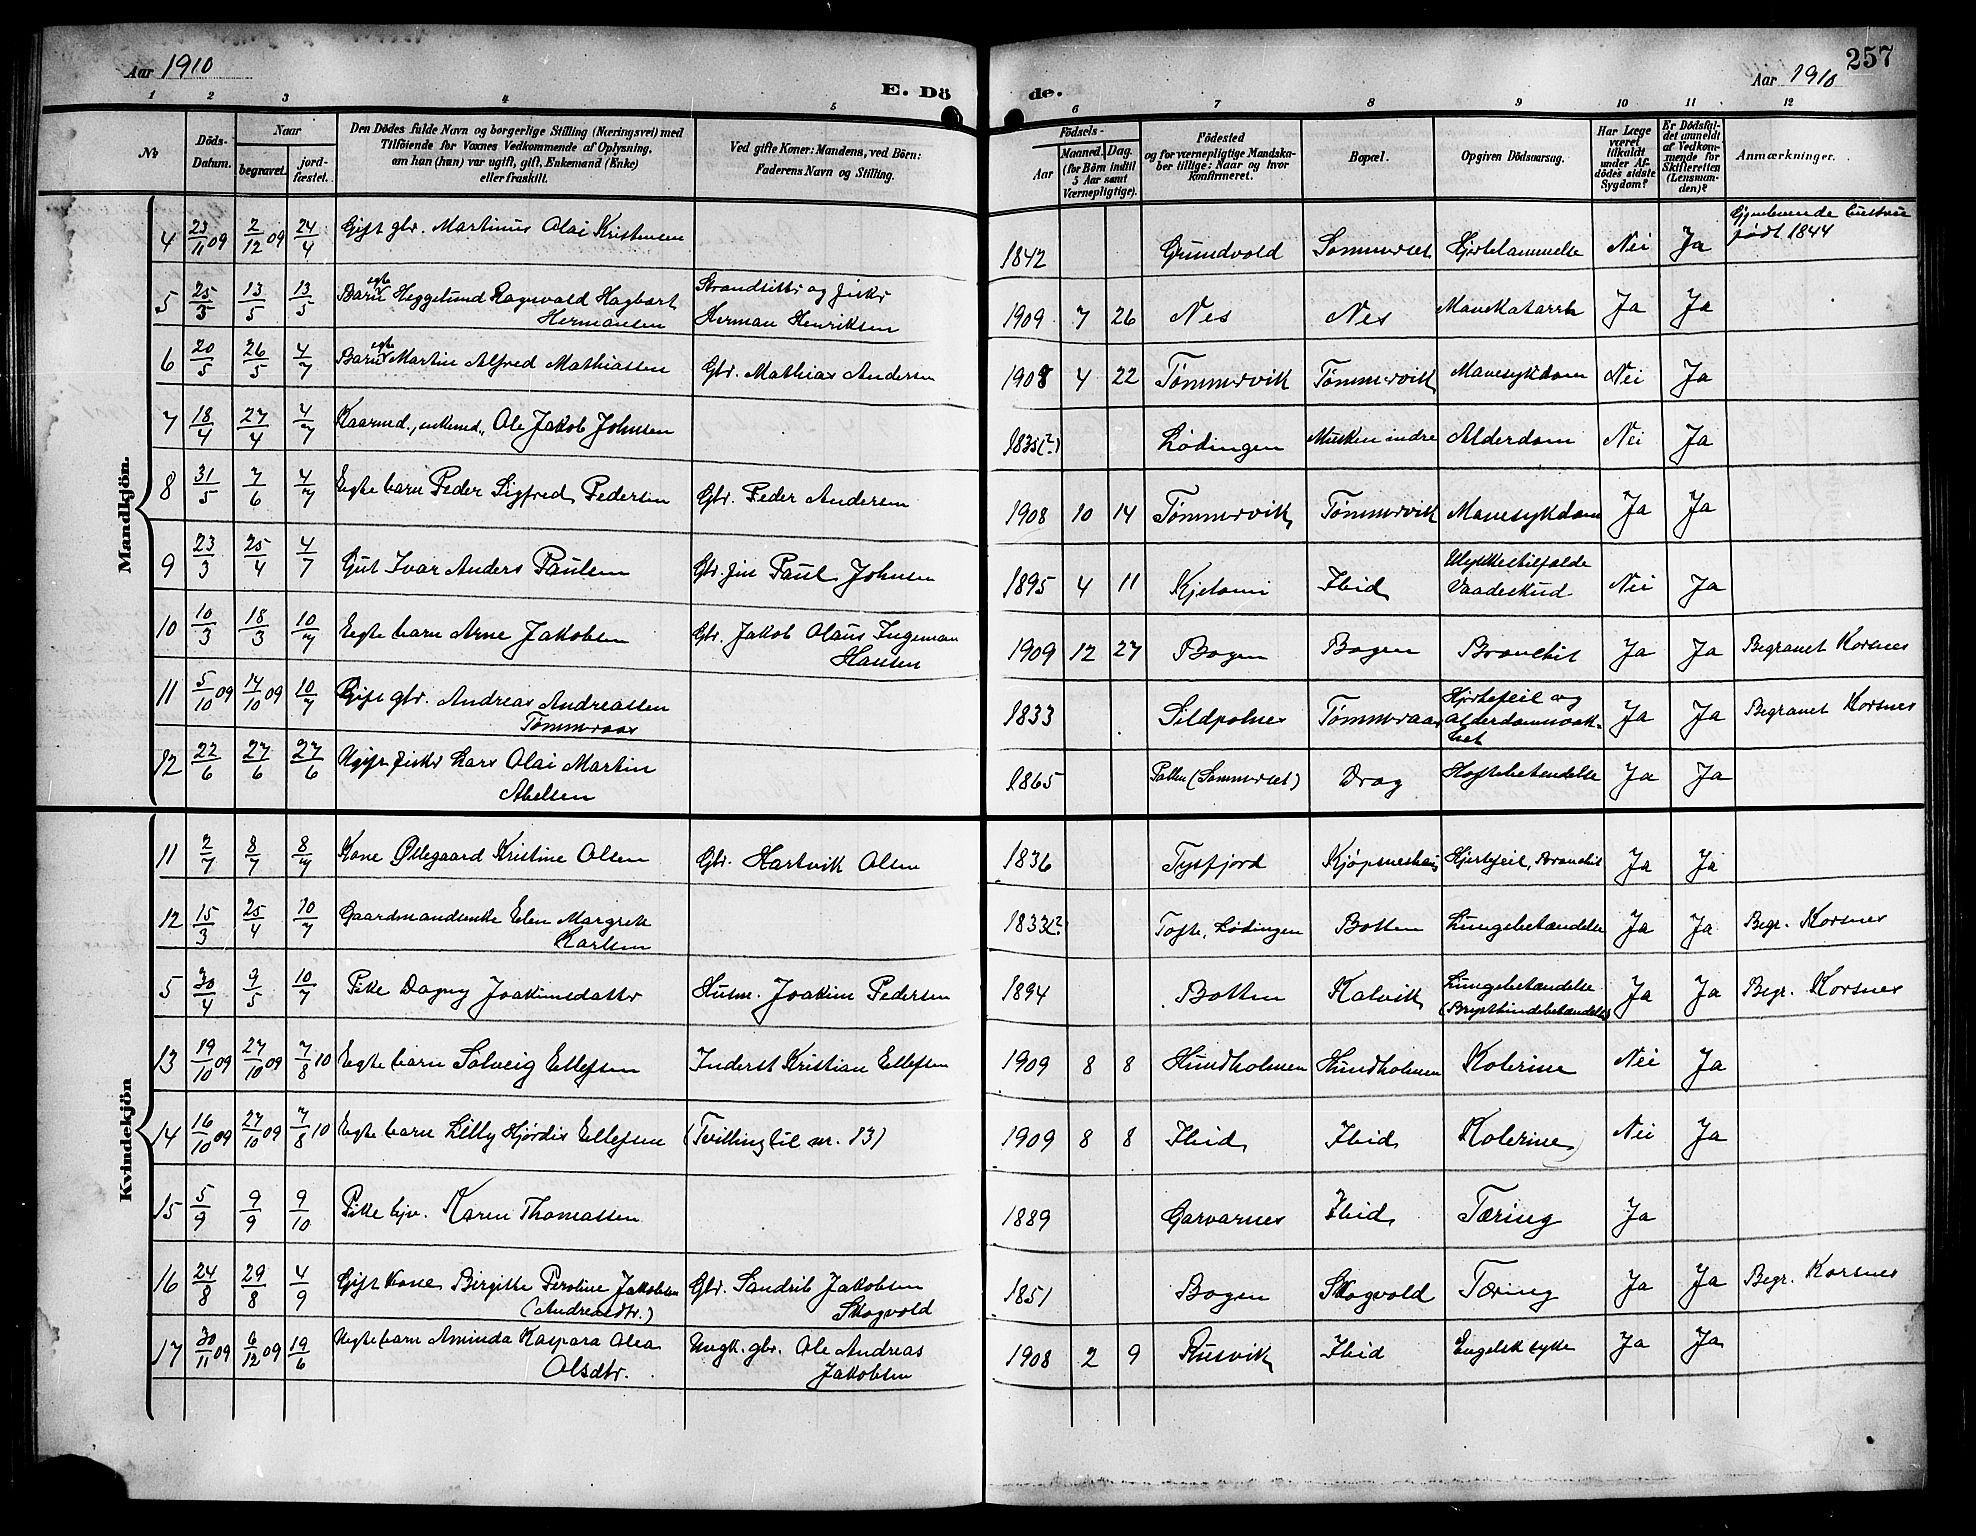 Aar 1910
E. Dö
de.
Aar 1910
257
1 2 3 4 5 6 7 8 9 10 11 12
No
Döds-
Datum.
Naar
begravet.
jord-
fæstet.
Den Dödes fulde Navn og borgerlige Stilling (Næringsvei) med
Tilföiende for Voxnes Vedkommende af Oplysning,
om han (hun) var ugift, gift, Enkemand (Enke)
eller fraskilt.
Ved gifte Koner: Mandens, ved Börn:
Faderens Navn og Stilling.
Födsels-
Aar
Maaned. Dag.
(for Börn indtil
5 Aar samt
Værnepligtige).
Födested
og for værnepligtige Mandska-
ber tillige: Naar og hvor
konfirmeret.
Bopæl.
Opgiven Dödsaarsag.
Har Læge
været
tilkaldt
under Af-
dödes sidste
Sygdom?
Er Dödsfal-
det anmeldt
af Vedkom-
mende for
Skifteretten
(Lensman-
den)?
Anmærkninger.
Mandkjön.
4 23/11 09 2/12 09 24/4 Gift gbr. Martinus Olai Kristensen 1842 Grundvold Sommerset Hjertelammelse Nei Ja Gjenlevende
født 1844
5 25/3 13/5 13/5 Barn egte Heggelund Ragnvald Hagbart
Hermansen
Strandsitter og fisker
Herman Henriksen 1909 7 26 Nes Nes Mavekatarrh Ja Ja
6 20/5 26/5 4/7 Barn egte Martin Alfred Mathiassen Gbr. Mathias Andersen 1908 4 22 Tømmervik Tømmervik Mavesykdom Nei Ja
7 18/4 27/4 4/7 Kaarmd., enkemd., Ole Jakob Johnsen 1835(?) Lødingen Musken indre Alderdom Nei Ja
8 31/5 7/6 4/7 Egte barn Peder Sigfred Pedersen Gbr. Peder Andersen 1908 10 14 Tømmervik Tømmervik Mavesykdom Ja Ja
9 23/3 25/4 4/7 Gut Ivar Anders Paulsen Gbr. fin Paul Johnsen 1895 4 11 Kjelami Ibid Ulykkestilfælde
Vaadeskud Nei Ja
10 10/3 18/3 10/7 Egte barn Arne Jakobsen Gbr. Jakob Olaus Ingeman
Hansen 1909 12 27 Bogen Bogen Bronchit Ja Ja Begravet Korsnes
11 5/10 09 14/10 09 10/7 Gift gbr. Andreas Andreassen
Tømmeraas 1833 Sildpolnes Tømmeraas Hjertefeil og
alderdomssvak-
het Ja Ja Begravet Korsnes
12 22/6 27/6 27/6 Ugift fisker Lars Olai Martin
Abelsen 1865 Pollen (Sommerset) Drag Hoftebetændelse Ja Ja
Kvindekjön
11 2/7 8/7 8/7 Kone Øllegaard Kristine Olsen Gbr. Hartvik Olsen 1836 Tysfjord Kjøpsneshaug Hjertefeil, Bronchit Ja Ja
12 15/3 25/4 10/7 Gaardmandsenke Elen Margrete
Karlsen 1833(?) Tofte, Lødingen Botten Lungebetændelse Ja Ja Begr. Korsnes
5 30/4 9/5 10/7 Pike Dagny Joakimsdatter Husm. Joakim Pedersen 1894 Botten Kalvik Lungebetændelse
(Brysthindebetændelse) Ja Ja Begr. Korsnes
13 19/10 09 27/10 09 7/8 10 Egte barn Solveig Ellefsen Inderst Kristian Ellefsen 1909 8 8 Hundholmen Hundholmen Kolerine Nei Ja
14 16/10 09 27/10 09 7/8 10 Egte barn Lilly Hjørdis Ellefsen (Tvilling til nr. 13) 1909 8 8 Ibid Ibid Kolerine Nei Ja
15 5/9 9/9 9/10 Pike Karen Thomassen 1889 Garvarnes Ibid Tæring Ja
16 24/8 29/8 4/9 Gift kone Birgitte Peroline Jakobsen
(Andreasdtr.)
Gbr. Sandrik Jakobsen
Skogvold 1851 Bogen Skogvold Tæring Ja Ja Begr. Korsnes
17 30/11 09 6/12 09 19/6 Uegte barn Aminda Kaspara Olea
Olsdtr.
Ungk. gbr. Ole Andreas
Jakobsen 1908 2 9 Rusvik Ibid Engelsk syke Ja Ja